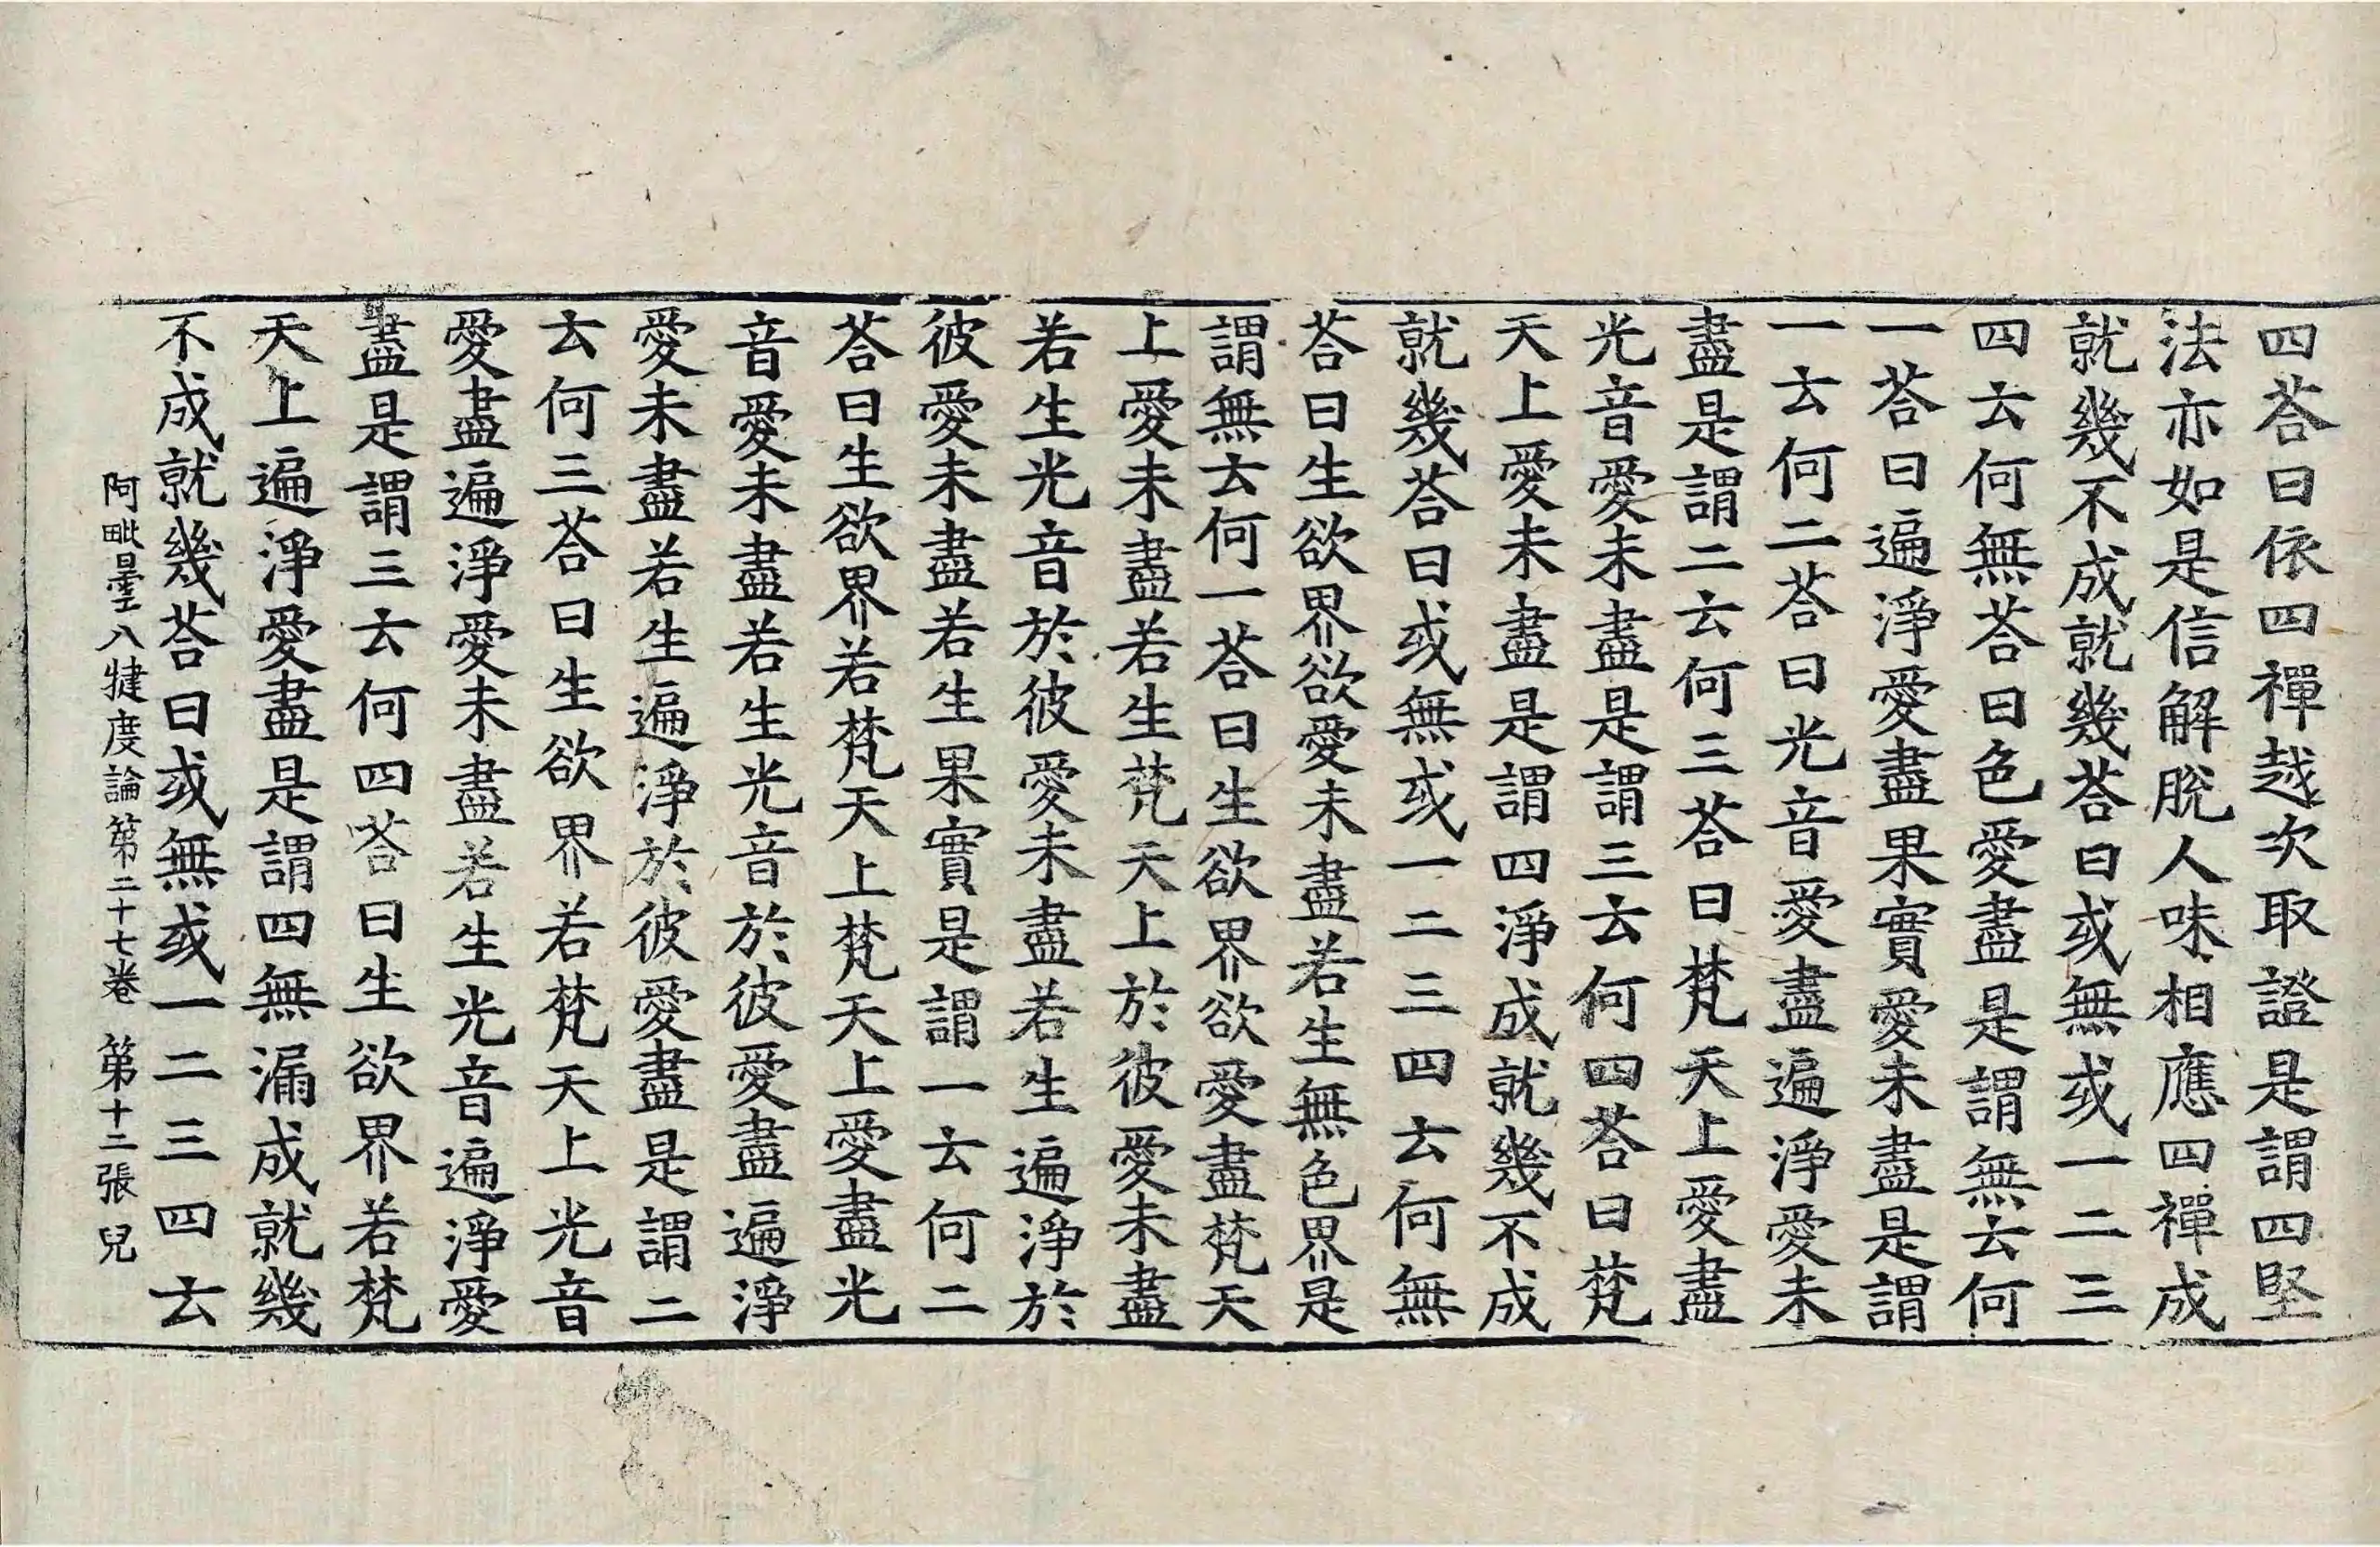 四荅曰依四禪越次取證是謂四堅
法亦如是信解脫人味相應四禪成
就幾不成就幾荅曰或無或一二三
四云何無荅曰色愛盡是謂無云何
一荅曰遍淨愛盡果實愛未盡是謂
一云何二荅曰光音愛盡遍淨愛未
盡是謂二云何三荅曰梵天上愛盡
光音愛未盡是謂三云何四荅曰梵
天上愛未盡是謂四淨成就幾不成
就幾荅曰或無或一二三四云何無
荅曰生欲界欲愛未盡若生無色界是
謂無云何一荅曰生欲界欲愛盡梵天
上愛未盡若生梵天上於彼愛未盡
若生光音於彼愛未盡若生遍淨於
彼愛未盡若生果實是謂一云何二
荅曰生欲界若梵天上梵天上愛盡光
音愛未盡若生光音於彼愛盡遍淨
愛未盡若生遍淨於彼愛盡是謂二
云何三荅曰生欲界若梵天上光音
愛盡遍淨愛未盡若生光音遍淨愛
盡是謂三云何四荅曰生欲界若梵
天上遍淨愛盡是謂四無漏成就幾
不成就幾荅曰或無或一二三四云
阿毗曇八犍度論第二十七卷 第十二張 兒